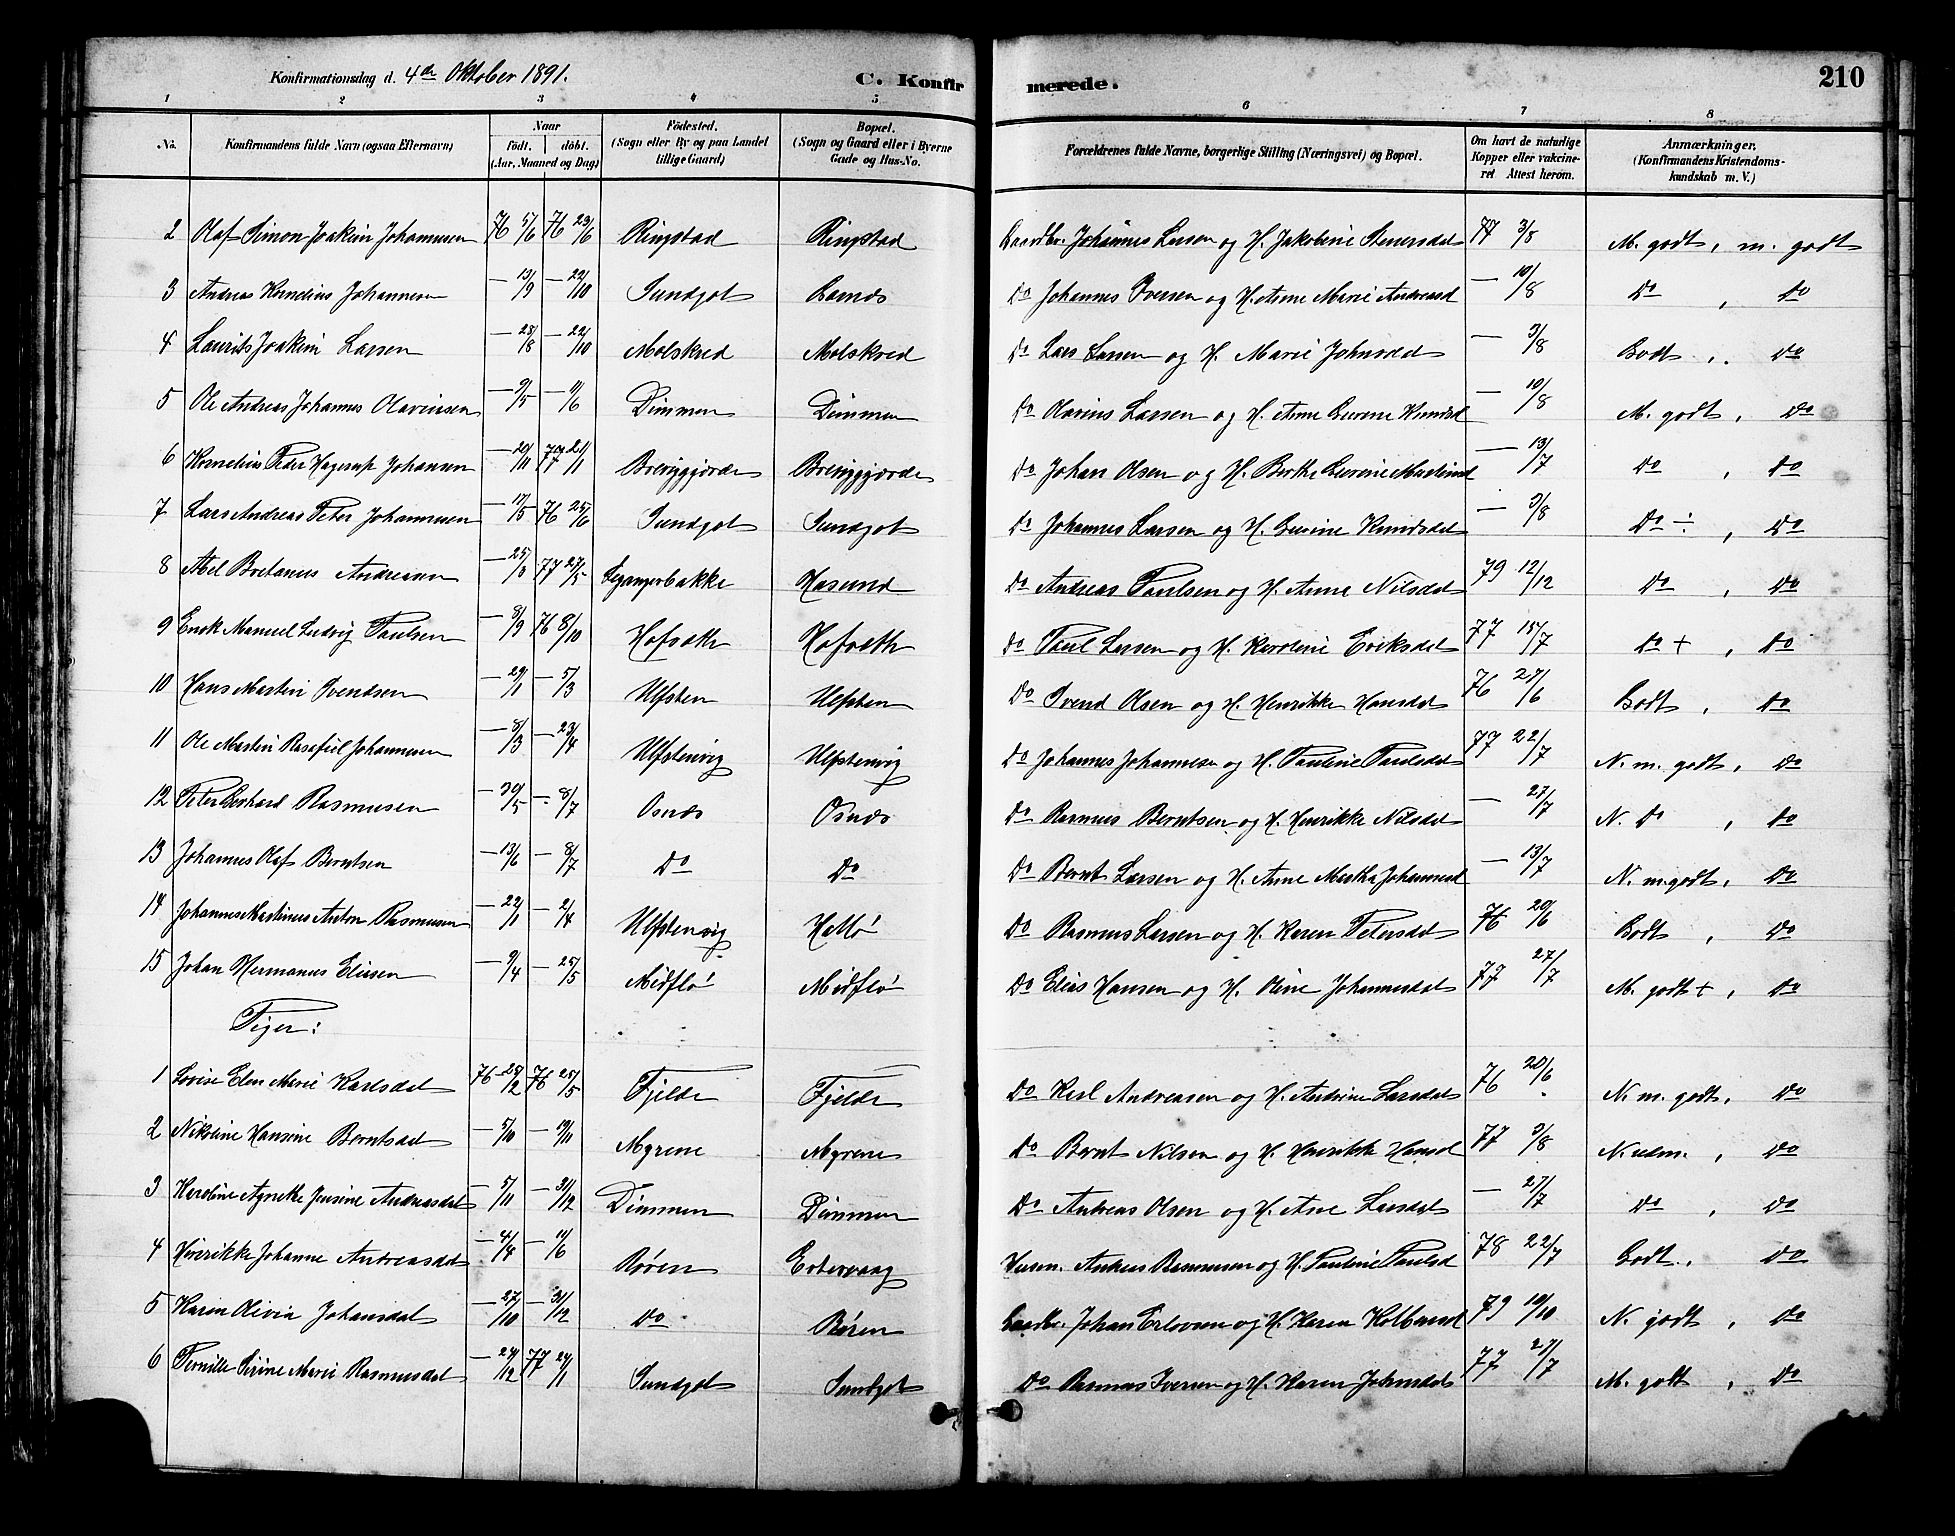 Konfirmationsdag d. 4de Oktober 1891. C. Konfirmerede. 210
1 2 3 4 5 6 7 8
No. Konfirmandens fulde Navn (ogsaa Efternavn) Naar født. døbt. (Aar, Maaned og Dag) Fødested. (Sogn eller By og paa Landet tillige Gaard) Bopæl. (Sogn og Gaard eller i Byerne Gade og Hus-No. Forældrenes fulde Navne, borgerlige Stilling (Næringsvei) og Bopæl. Om havt de naturlige Kopper eller vakcineret Attest herom. Anmærkninger. (Konfirmandens Kristendomskundskab m. V.)
2 Olaf Simon Joakim Johannesen 76 5/6 76 23/6 Ringstad Ringstad Gaardbr. Johannes Larsen og H. Jakobine 77 3/8 M. godt, m. godt
3 Andreas Kornelius Johannesen — 13/9 — 22/10 Sundgot Do Johannes Iversen og H. Anne Marie Andreasd — 10/8 Do, Do
4 Laurits Joakim Larsen — 28/8 — 22/10 Molskred Molskred Do Lars Larsen og H. Marie Johnsd — 3/8 Godt, Do
5 Ole Andreas Johannes Olavinsen — 9/5 — 11/6 Dimmen Dimmen Do Olavins Larsen og H. Anne Gurine Knudsd — 10/8 M. godt, Do
6 Kornelius Peder Hagerup Johansen — 20/11 77 21/1 Breiviggjerde Breiviggjerde Do Johan Olsen og H. Berthe Gurine — 13/7 Do, Do
7 Lars Andreas Peter Johannesen — 11/5 76 25/6 Sundgot Sundgot Do Johannes Larsen og H. Gurine Knudsdat — 3/8 Do ÷, Do
8 Abel Bretanus Andreasen — 25/3 77 27/5 Hasund Do Andreas Paulsen og H. Anne Nilsdat 79 12/12 Do, Do
9 Enok Manuel Ludvig Paulsen — 8/9 76 8/10 Hofseth Hofseth Do Paul Larsen og H. Karoline Eriksdat 77 15/7 Do +, Do
10 Hans Martin Svendsen — 29/1 — 5/3 Ulfsten Ulfsten Do Svend Olsen og H. Henrikke Hansdat 76 27/6 Godt, Do
11 Ole Martin Rasafiel Johannesen — 8/3 — 23/4 Ulfstenvig Ulfstenvig Do Johannes Johannesen og H. Pauline Paulsdat 77 22/7 N. m. godt, Do
12 Peter Gerhard Rasmusen — 30/5 — 8/7 Osnæs Osnæs Do Rasmus Berntsen og H. Henrikke Nilsdat — 27/7 N. Do, Do
13 Johannes Olaf Berntsen — 13/6 — 8/7 Do Do Do Bernt Larsen og H. Anne Martha Johannesd — 13/7 N. m. godt, Do
14 Johannes Martinus Anton Rasmusen — 22/1 — 2/4 Ulfstenvig Hatlø Do Rasmus Larsen og H. Karen Petersdat 76 20/6 Godt, Do
15 Johan Hermanus Eliasen — 9/4 — 25/5 Midflø Midflø Do Elias Hansen og H. Oline Johannesdat 77 27/7 M. godt +, Do
Piger:
1 Lovise Elen Marie Karlsdat 76 28/2 76 25/5 Fjelde Fjelde Do Karl Andreasen og H. Andrine Larsdat 76 20/6 N. m. godt, Do
2 Nikoline Hansine Berntsdat — 5/10 — 19/11 Myrene Myrene Do Bernt Nilsen og H. Henrikke Hansd 77 3/8 N. udm., Do
3 Karoline Agnethe Jensine Andreasdat — 5/11 — 31/12 Dimmen Dimmen Do Andreas Olsen og H. Ane Larsdat — 27/7 Do, Do
4 Henrikke Johanne Andreasdat — 4/4 — 11/6 Røren Eitervaag Husm. Andreas Rasmusen og H. Pauline Paulsd 78 22/7 Godt, Do
5 Karen Olivia Johansdat — 27/10 — 31/12 Do Røren Gaardbr. Johan Erlovsen og H. Karen 79 10/10 N. godt, Do
6 Pernille Sirine Marie Rasmusdat — 24/12 77 24/1 Sundgot Sundgot Do Rasmus Iversen og H. Karen Johnsdat 77 27/7 M. godt, Do